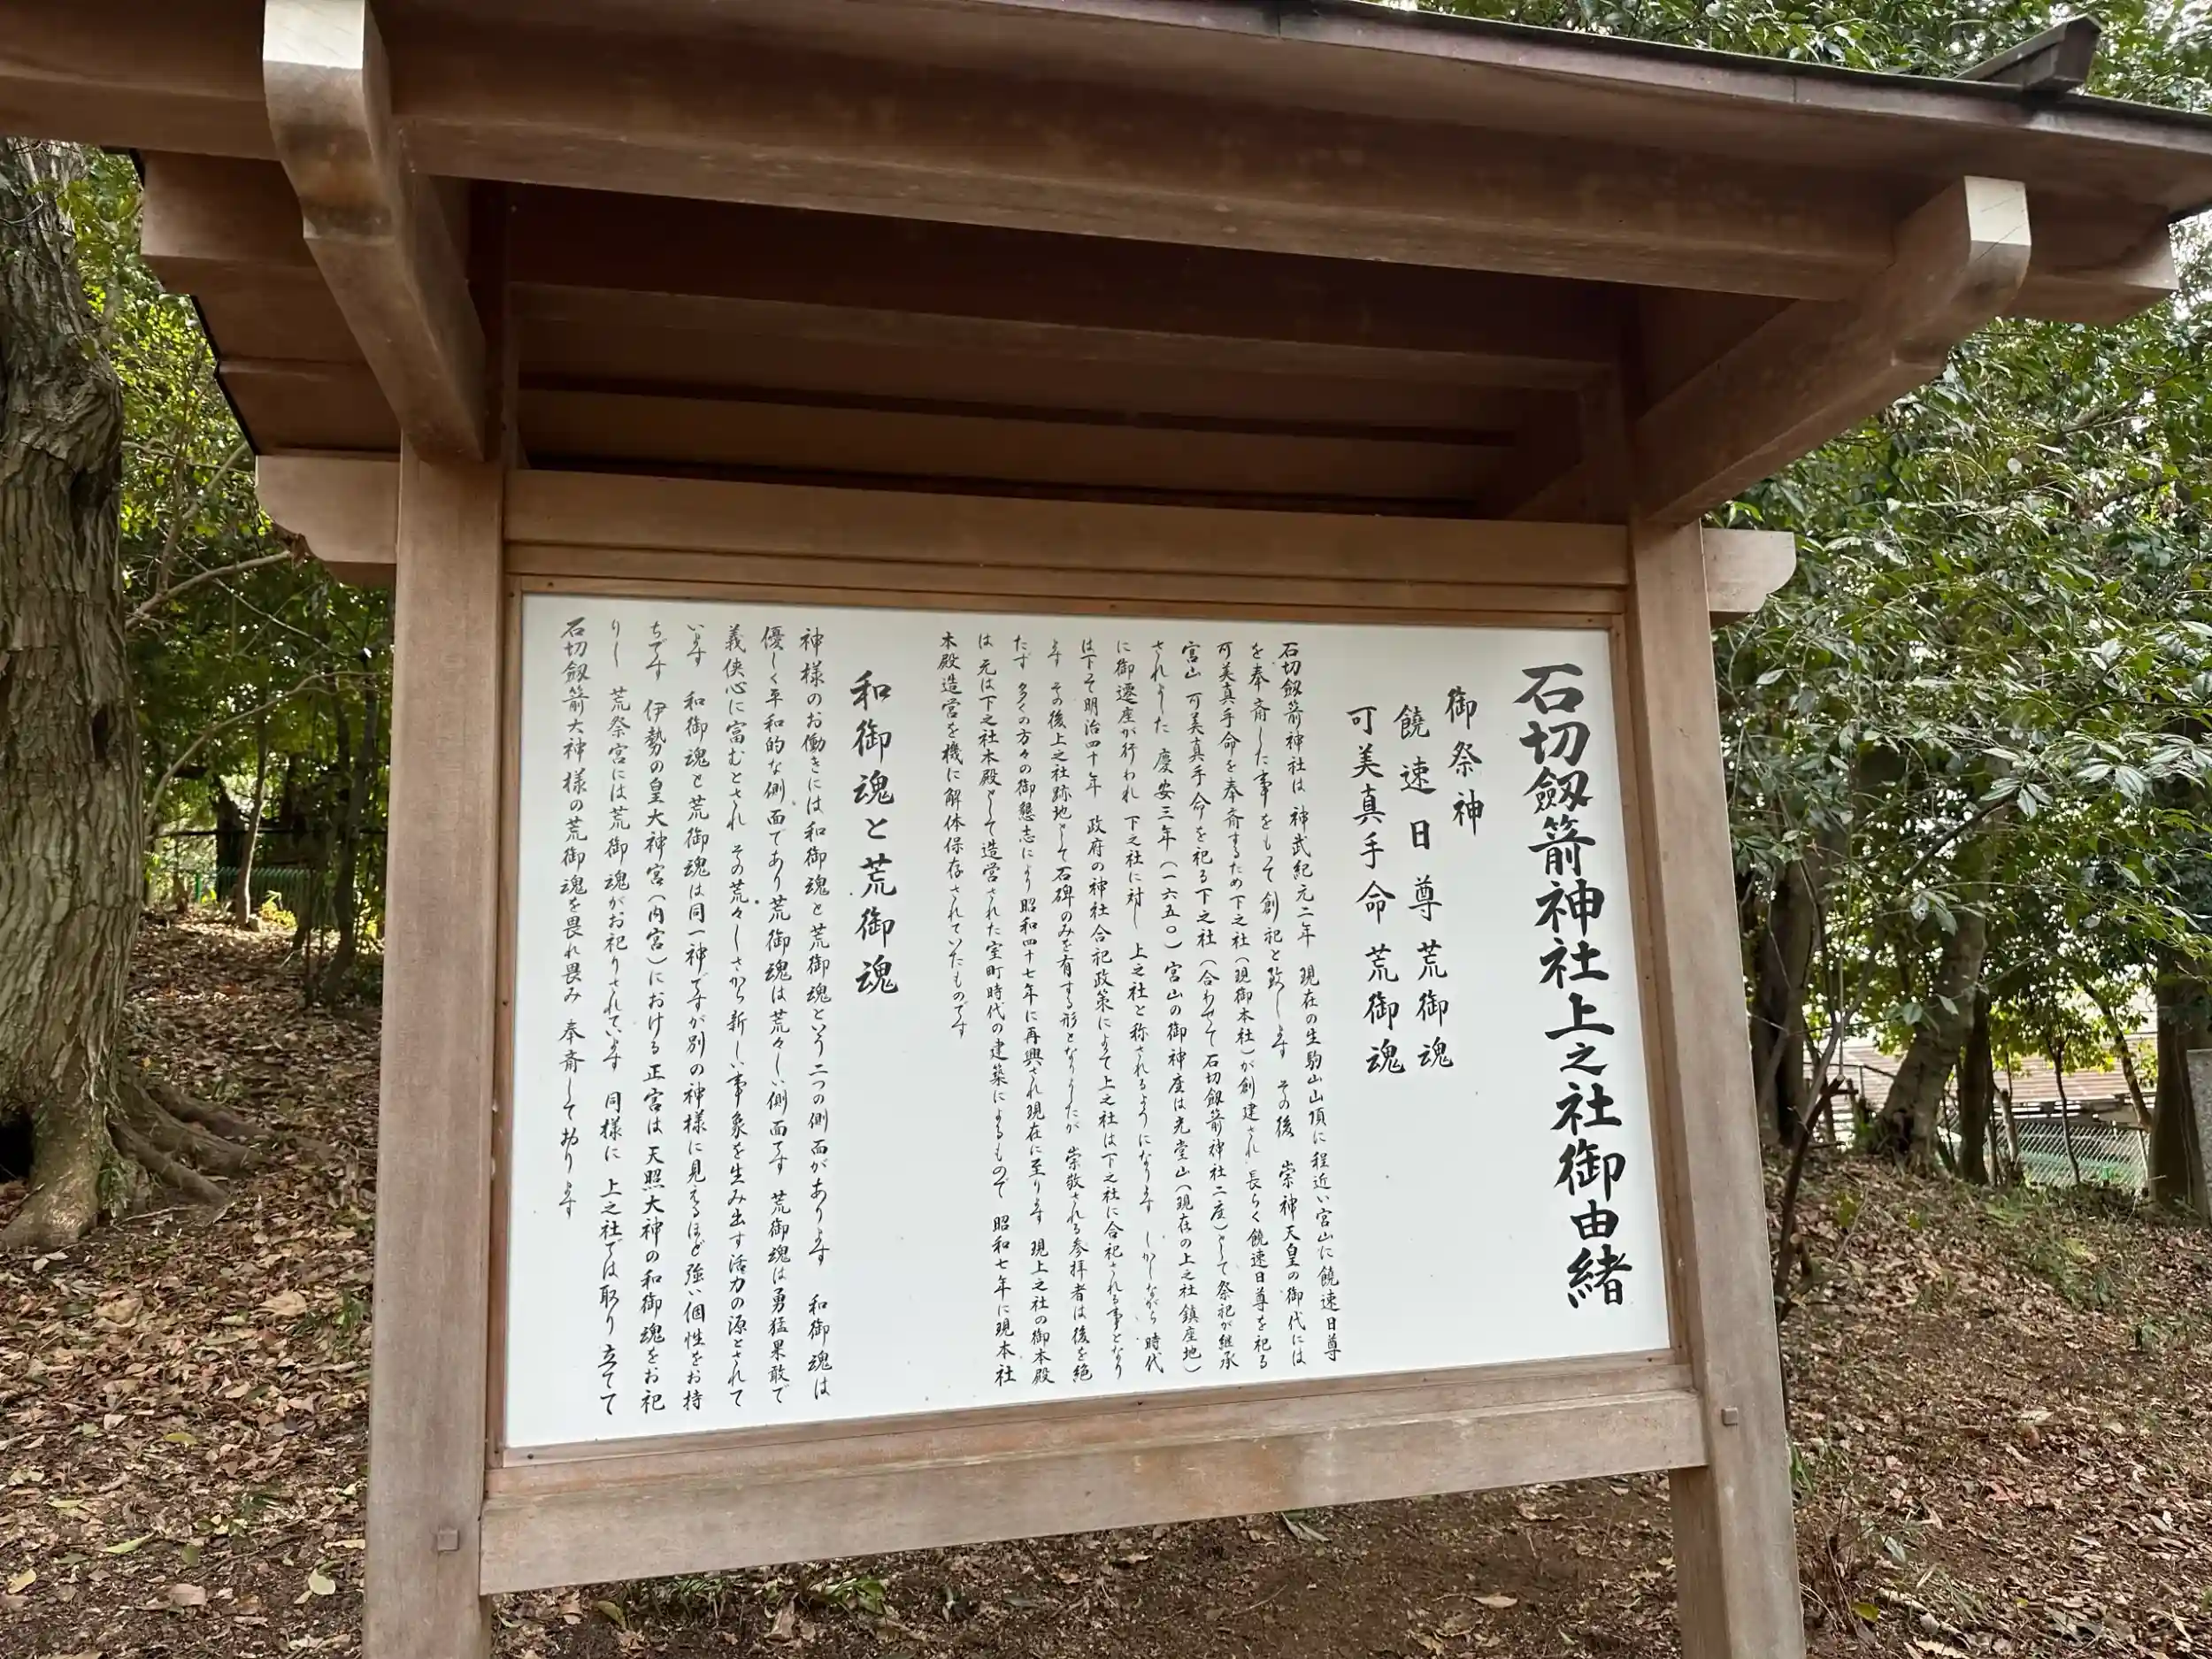 石切劔箭神社上之社御由緒
御祭神
饒速日尊荒御魂
可美真手命荒御魂
石切劔箭神社は 神武紀元二年 現在の生駒山山頂に程近い宮山に饒速日尊
を奉斎した事をもって創祀と致します その後 崇神天皇の御代には
可美真手命を奉斎するため下之社(現御本社)が創建され 長らく饒速日尊を祀る
宮山 可美真手命を祀る下之社(合わせて石切劔箭神社二座)として祭祀が継承
されました 慶安三年(一六五〇)宮山の御神座は光堂山(現在の上之社鎮座地)
に御遷座が行われ 下之社に対し 上之社と称されるようになります しかしながら時代
は下って明治四十年 政府の神社合祀政策によって上之社は下之社に合祀される事となり
ます その後上之社跡地として石碑のみを有する形となりましたが 崇敬される参拝者は後を絶
たず 多くの方々の御懇志により昭和四十七年に再興され現在に至ります 現上之社の御本殿
は 元は下之社本殿として造営された室町時代の建築によるもので 昭和七年に現本社
本殿造営を機に解体保存されていたものです
和御魂と荒御魂
神様のお働きには和御魂と荒御魂という二つの側面があります 和御魂は
優しく平和的な側面であり荒御魂は荒々しい側面です 荒御魂は勇猛果敢で
義侠心に富むとされ その荒々しさから新しい事象を生み出す活力の源とされて
います 和御魂と荒御魂は同一神ですが別の神様に見えるほど強い個性をお持
ちです 伊勢の皇大神宮(内宮)における正宮は天照大神の和御魂をお祀
りし 荒祭宮には荒御魂がお祀りされています 同様に 上之社では取り立てて
石切劔箭大神様の荒御魂を畏れ畏み 奉斎して訥ります